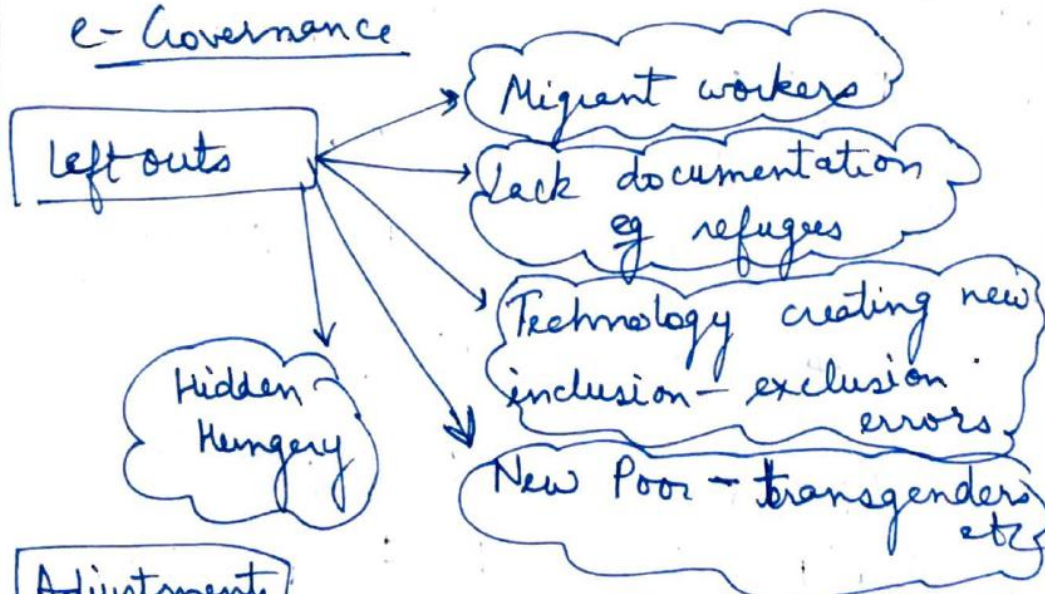 e-Governance
Left outs
Migrant workers
Lack documentation
eg refugees
Technology creating new
inclusion - exclusion
errors
New Poor - transgenders
etc
Hidden
Hungery
Adjustments